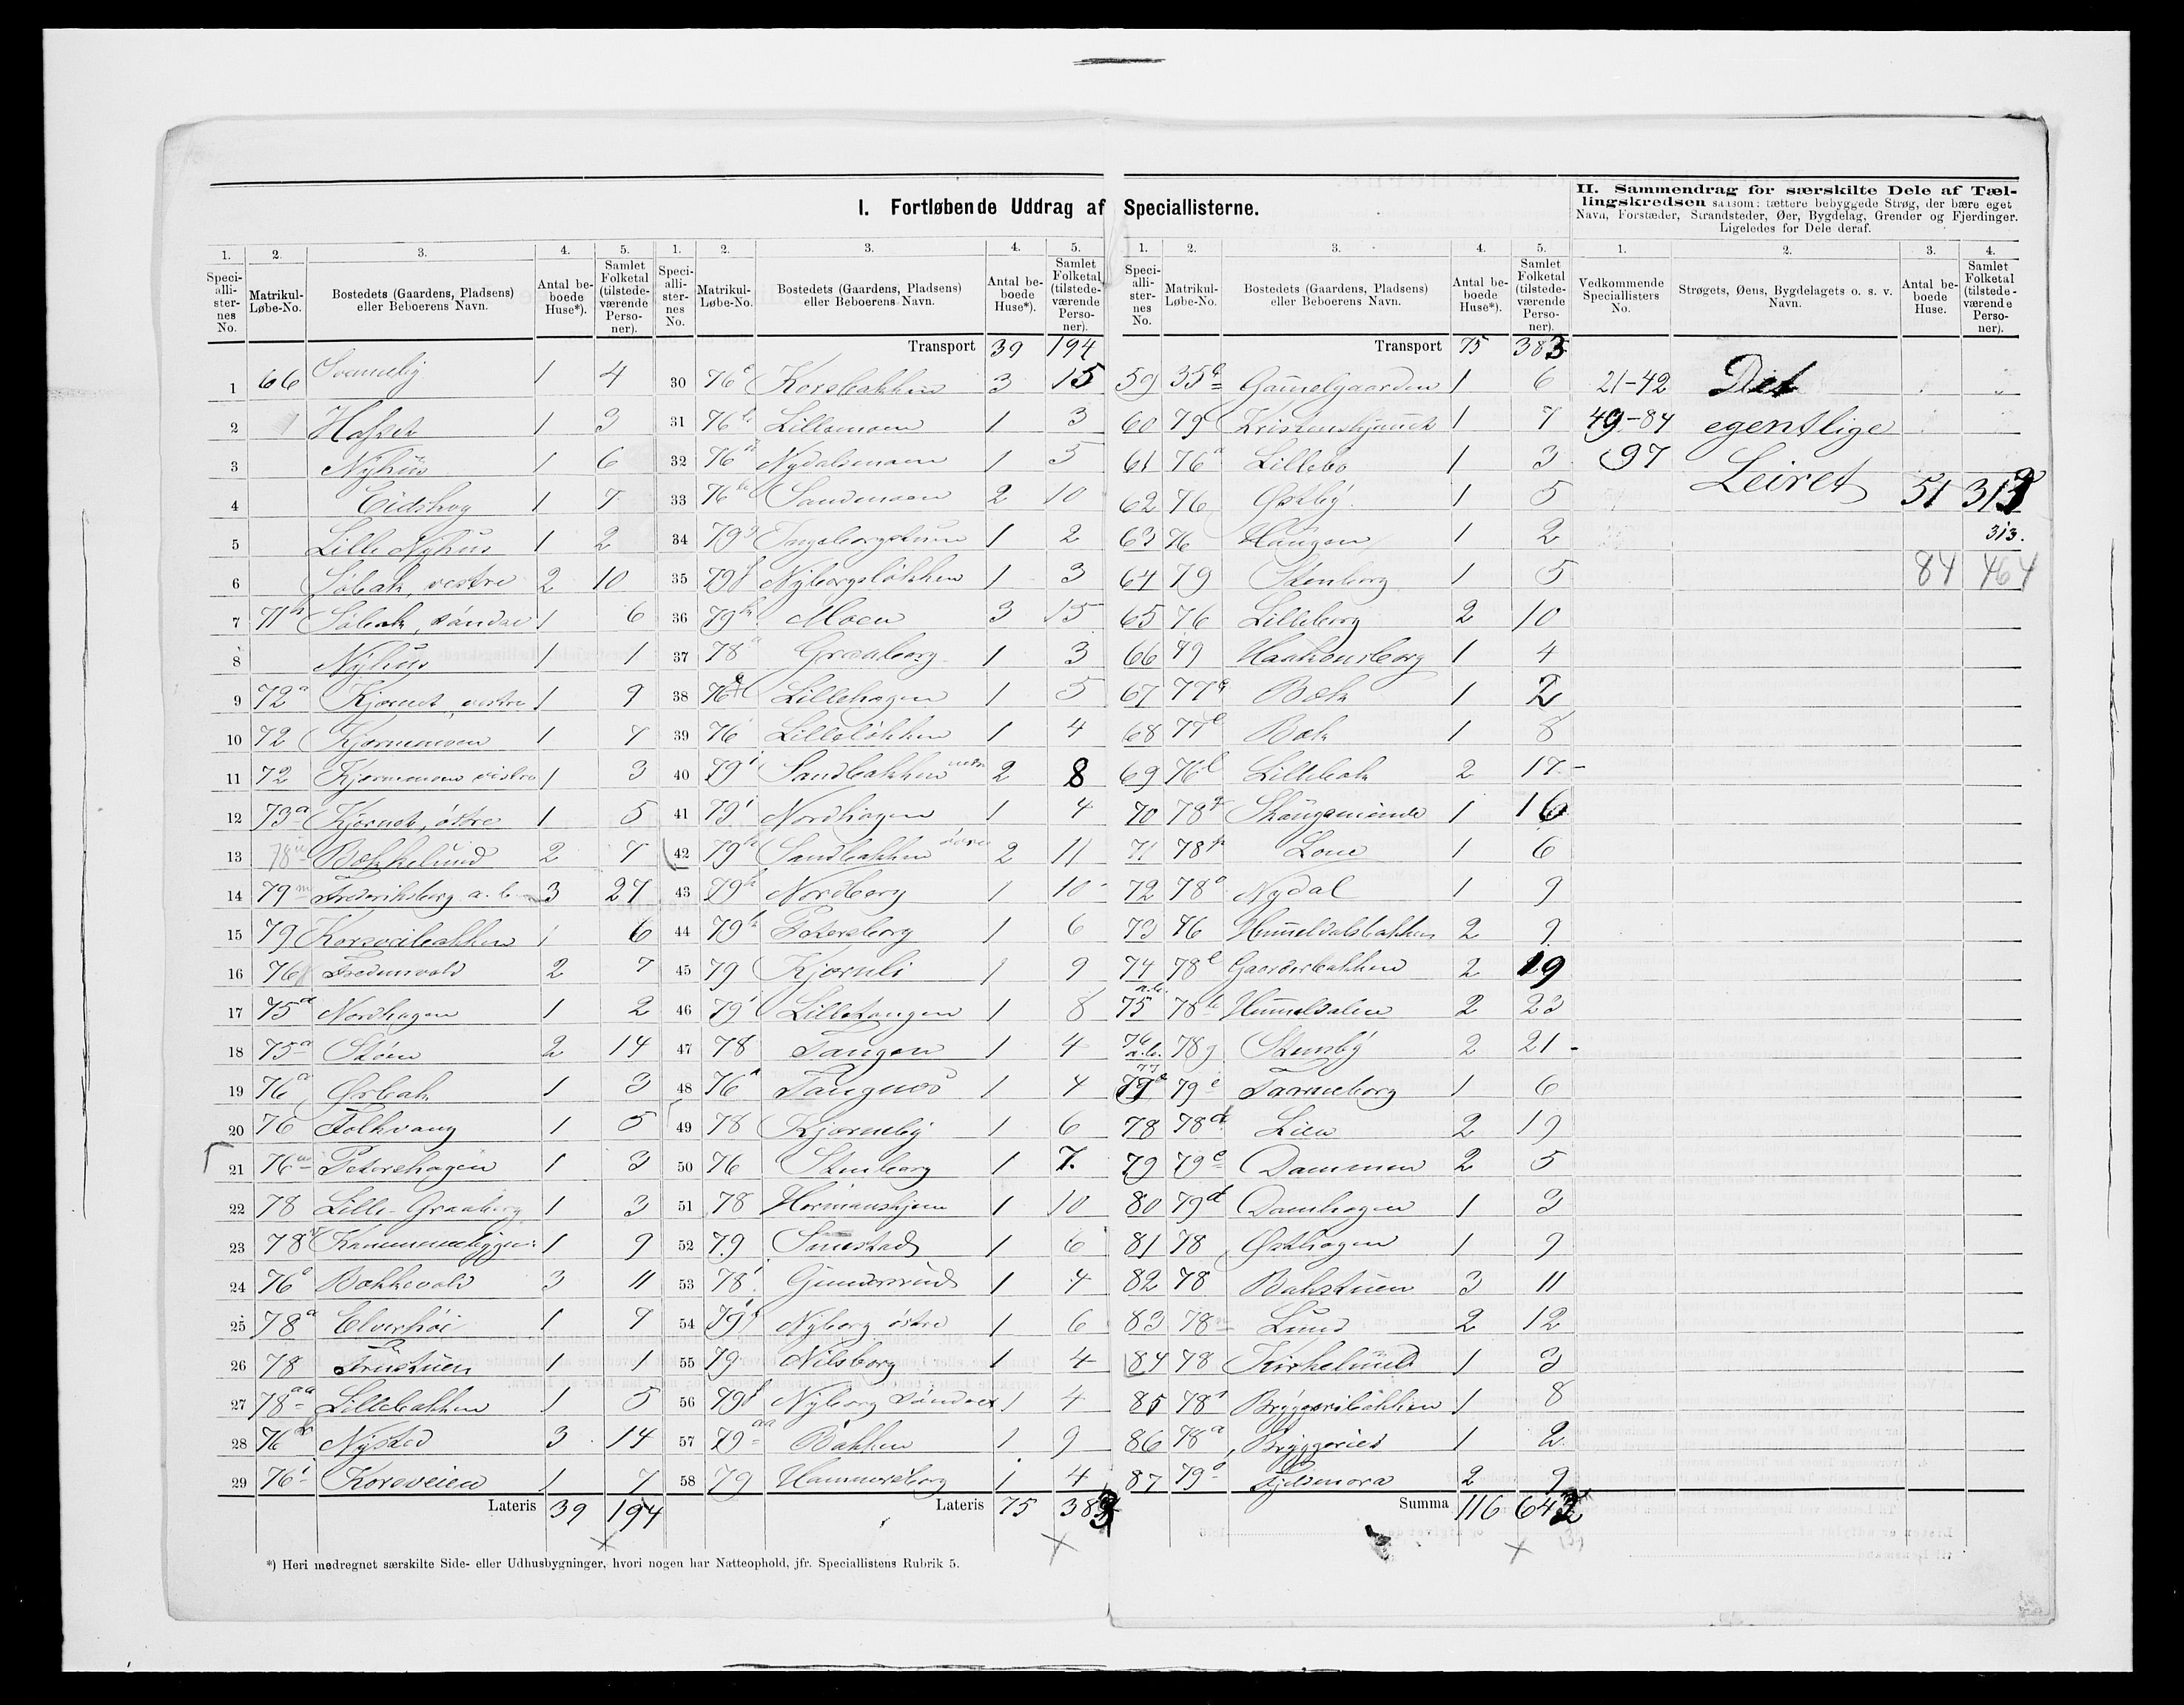 I. Fortløbende Uddrag af Speciallisterne.
II. Sammendrag for særskilte Dele af Tæl-
lingskredsen saasom: tættere bebyggede Strøg, der bære eget
Navn, Forstæder, Strandsteder, Øer, Bygdelag, Grender og Fjerdinger.
Ligeledes for Dele deraf.
1. 2. 3. 4. 5.
Speci-alli-ster-nes No. Matrikul-Løbe-No. Bostedets (Gaardens, Pladsens) eller Beboerens Navn. Antal be-boede Huse*). Samlet Folketal (tilstede-værende Perso-ner).
1 66 Svenneby 1 4
2 Hafset 1 3
3 Nyhus 1 6
4 Eidskog 1 7
5 Lille Nyhus 1 2
6 Søbak, vestre 2 10
7 71 Søbak, søndre 1 6
8 Nyhus 1 1
9 72a Kjernet, vestre 1 9
10 72 Kjernemoen 1 7
11 72 Kjernemoen vestre 1 3
12 73a Kjernet, østre 1 5
13 78 Bækkelund 2 7
14 79m Frederiksberg a. b. 3 27
15 79 Korsveibakken 1 6
16 76 Fredenvold 2 7
17 75a Nordhagen 1 2
18 75a Støen 2 14
19 76a Ørbak 1 3
20 76 Folkvang 1 5
21 76 Petershagen 1 3
22 78 Lille-Graaberg 1 3
23 78 1 9
24 76 Bækkevold 3 11
25 78a Elverhøi 1 7
26 78 Enestuen 1 1
27 78aa Lillebakken 1 5
28 76 Nysted 3 14
29 76i Korsveien 1 7
Lateris 39 194
1. 2. 3. 4. 5.
Speci-alli-ster-nes No. Matrikul-Løbe-No. Bostedets (Gaardens, Pladsens) eller Beboerens Navn. Antal be-boede Huse*). Samlet Folketal (tilstede-værende Perso-ner).
Transport 39 194
30 76 Korsbakken 3 15
31 76 Lillemoen 1 3
32 76 Nydalsmoen 1 5
33 76 Sandmoen 2 10
34 79 Ingeborgstuen 1 2
35 79f Nyborgsløkken 1 3
36 79 Moen 3 15
37 78a Graaberg 1 3
38 76 Lillehagen 1 5
39 76 Lilleløkken 1 4
40 79i Sandbakken nedre 2 8
41 79i Nordhagen 1 4
42 79 Sandbakken øvre 2 11
43 79 Nordberg 1 10
44 79 Petersborg 1 6
45 79 Kjernli 1 9
46 79i Lilletangen 1 8
47 78 Tangen 1 4
48 76 Tangnes 1 4
49 78 Kjerneby 1 6
50 76 Stenberg 1 7
51 78 Hermanshjem 1 10
52 79 1 6
53 78i Gundersrud 1 4
54 79 Nyborg østre 1 6
55 79 Nilsborg 1 4
56 79f Nyborg søndre 1 4
57 79aa Bakken 1 9
58 79 Hammersborg 1 4
Lateris 75 383
1. 2. 3. 4. 5.
Speci-alli-ster-nes No. Matrikul-Løbe-No. Bostedets (Gaardens, Pladsens) eller Beboerens Navn. Antal be-boede Huse*). Samlet Folketal (tilstede-værende Perso-ner).
Transport 75 383
59 35 Gammelgaarden 1 6
60 79 1 7
61 76a Lillebo 1 3
62 76 Østby 1 5
63 76 Haugen 1 2
64 79 Stenborg 1 5
65 76 Lilleborg 2 10
66 79 Haakonsborg 1 4
67 77 Bæk 1 2
68 77 Bæk 1 8
69 76l Lillebæk 2 17
70 78 1 16
71 78 Lone 1 6
72 78 Nydal 1 9
73 76 Hummeldalsbakken 2 9
74 78l Gaarderbakken 2 19
75 a.b. 78b Hummeldalen 2 23
76 a.b. 78 Stensby 2 21
77 79e Tanneborg 1 6
78 78d Lien 2 19
79 79e Dammen 2 5
80 79d Damhagen 1 3
81 78 Østhagen 1 9
82 78 Bakstuen 3 11
83 78 Lund 2 12
84 78 Kirkelund 1 3
85 78 Bryggeribakken 1 8
86 78a Bryggeriet 1 2
87 79 2 9
Summa 116 643
1. 2. 3. 4.
Vedkommende Speciallisters No. Strøgets, Øens, Bygdelagets o. s. v. Navn. Antal be-boede Huse. Samlet Folketal (tilstede-værende Perso-ner).
21-42 Det
49-84 egentlige
97 Leiret 51 313
313.
84 464
*) Heri medregnet særskilte Side- eller Udhusbygninger, hvori nogen har Natteophold, jfr. Speciallistens Rubrik 5.